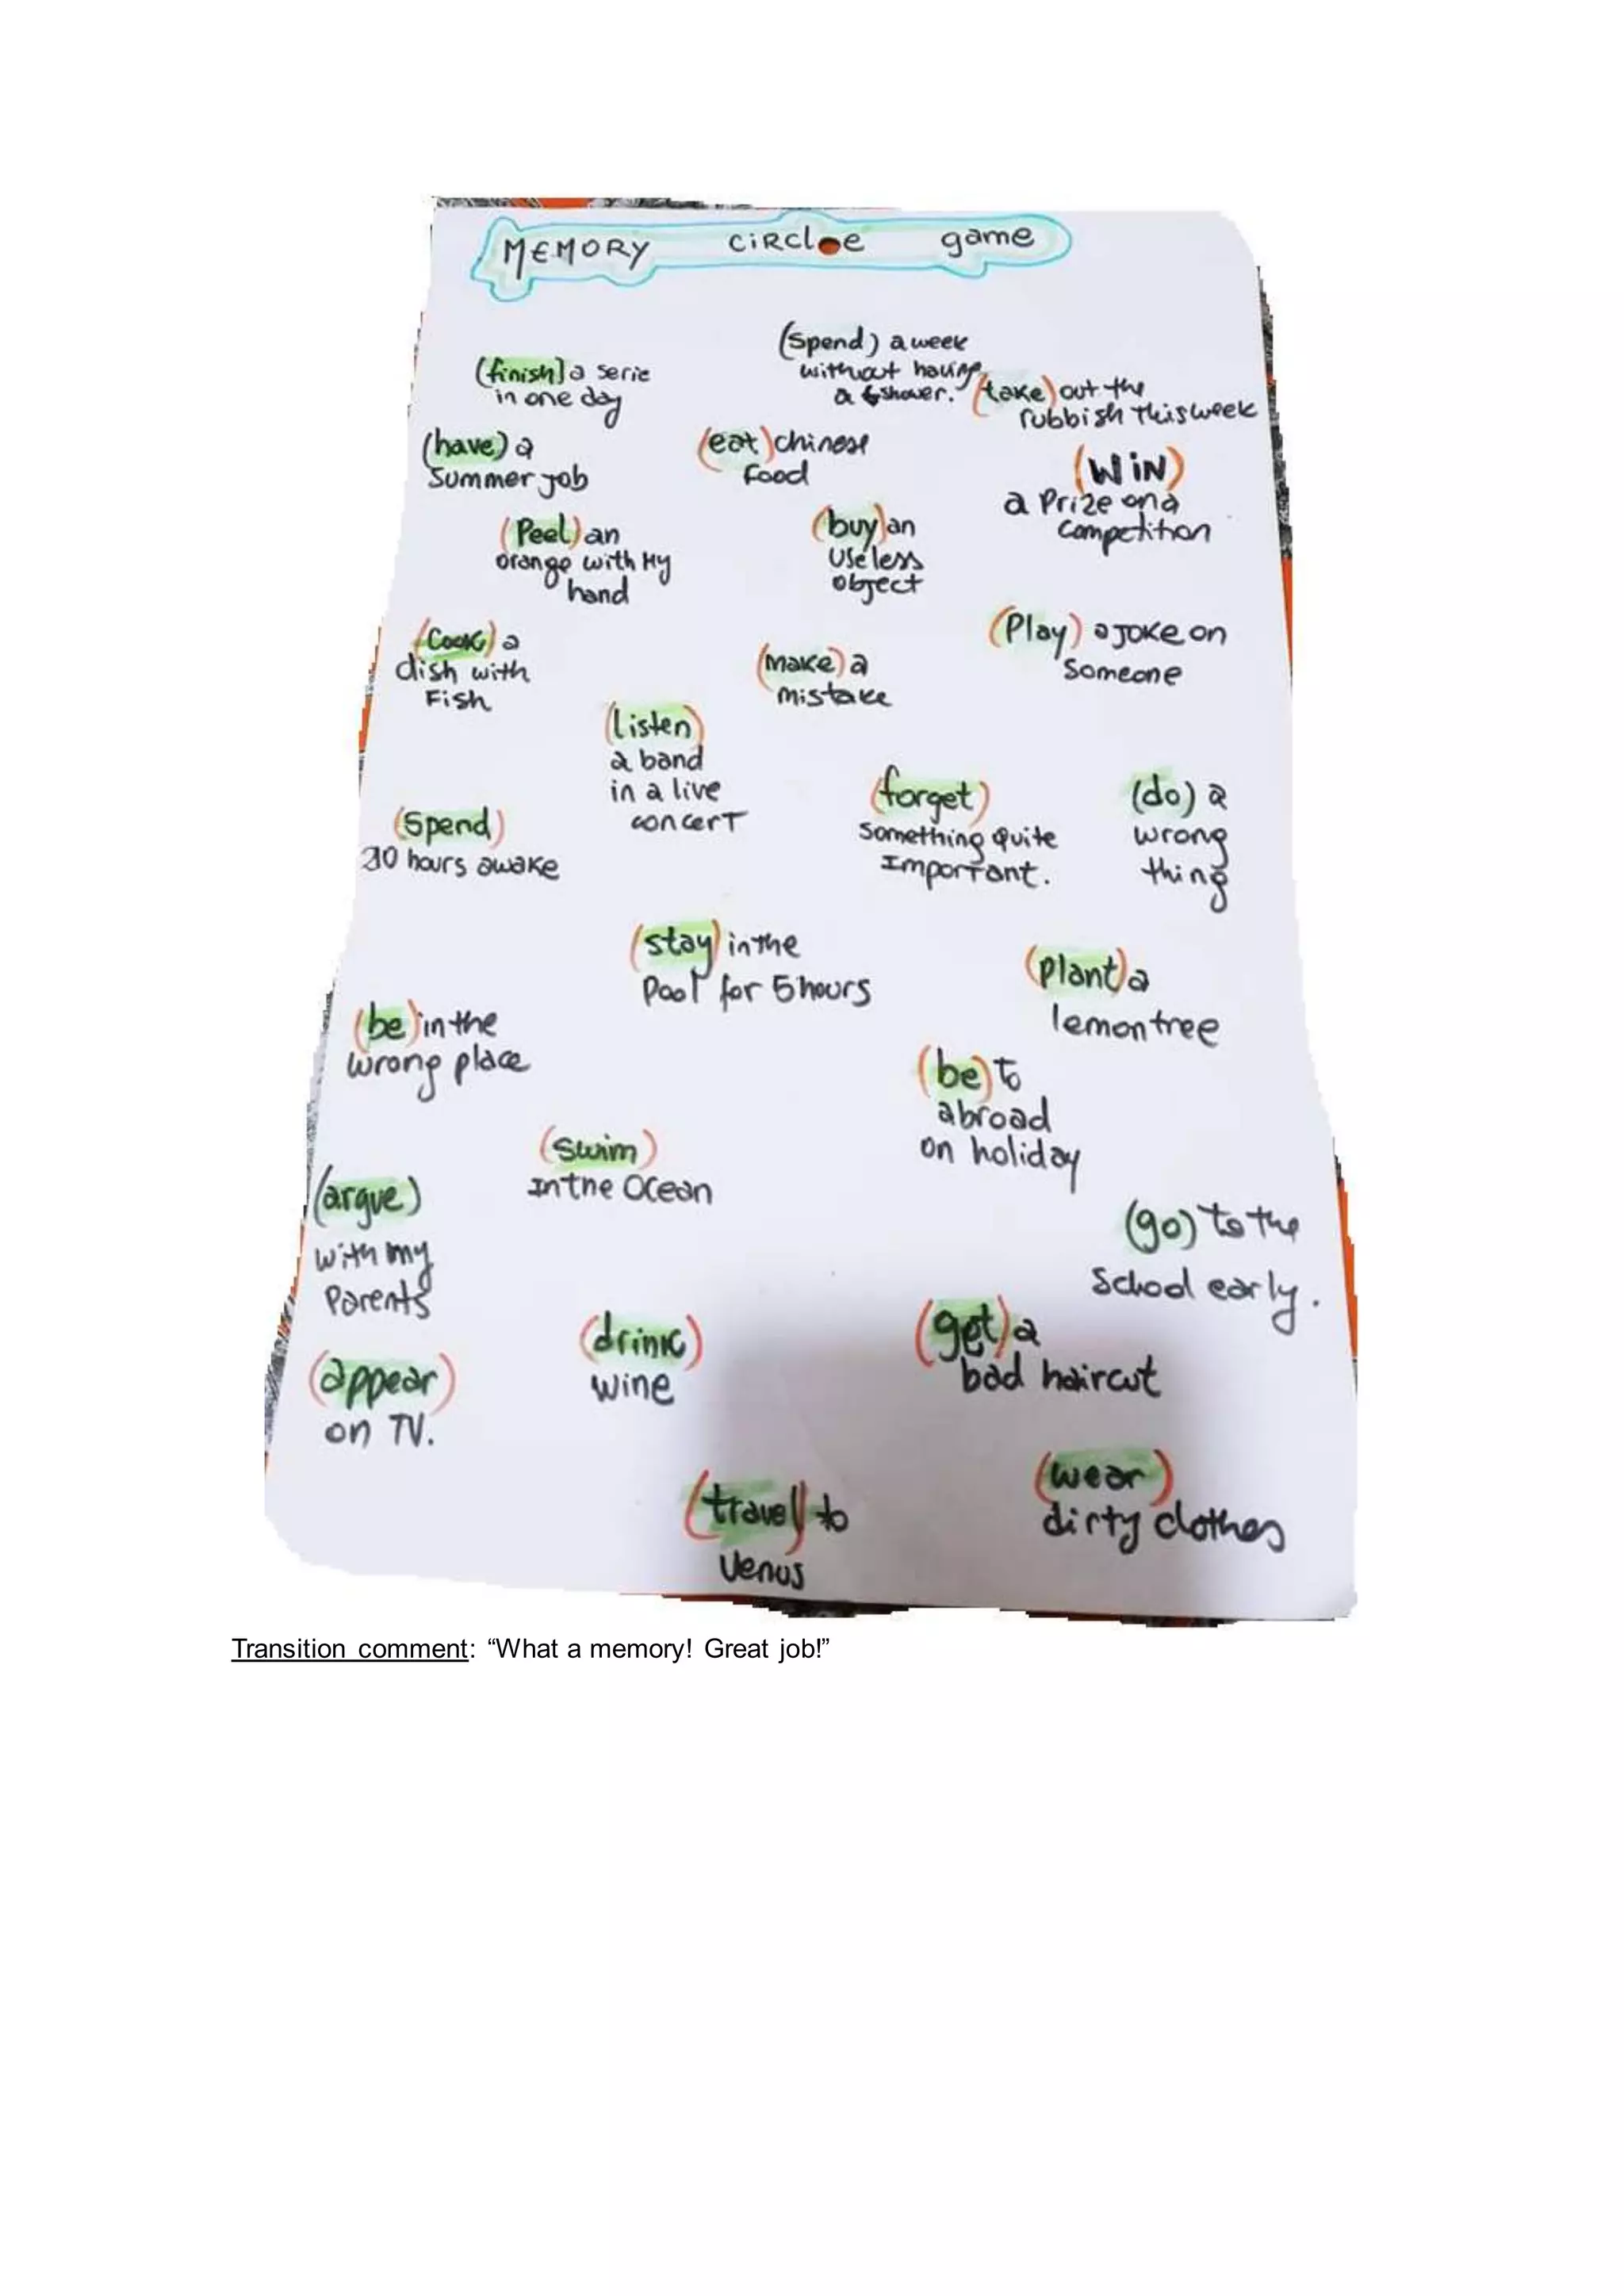 MEMORY CiRCle game
(spend) a week
without having
a shower.
(finish) a serie
in one day
(take) out the
rubbish this week
(have) a
Summer job
(eat) chinese
Food
(WiN)
a Prize on a
competition
(Peel) an
orange with My
hand
(buy) an
Useless
object
(Play) a JOKE on
Someone
(COOK) a
dish with
Fish
(make) a
mistake
(Listen)
a band
in a live
concerT
(forget)
something quite
ImporTant.
(do) a
wrong
thing
(Spend)
hours awake
(stay) in the
Pool for 5 hours
(plant) a
lemon tree
(be) in the
wrong place
(be) to
abroad
on holiday
(swim)
In the Ocean
(argue)
with my
Parents
(go) to the
School early.
(drink)
wine
(get) a
bad haircut
(appear)
on TV.
(wear)
dirty clothes
(travel) to
Venus
Transition comment: “What a memory! Great job!”